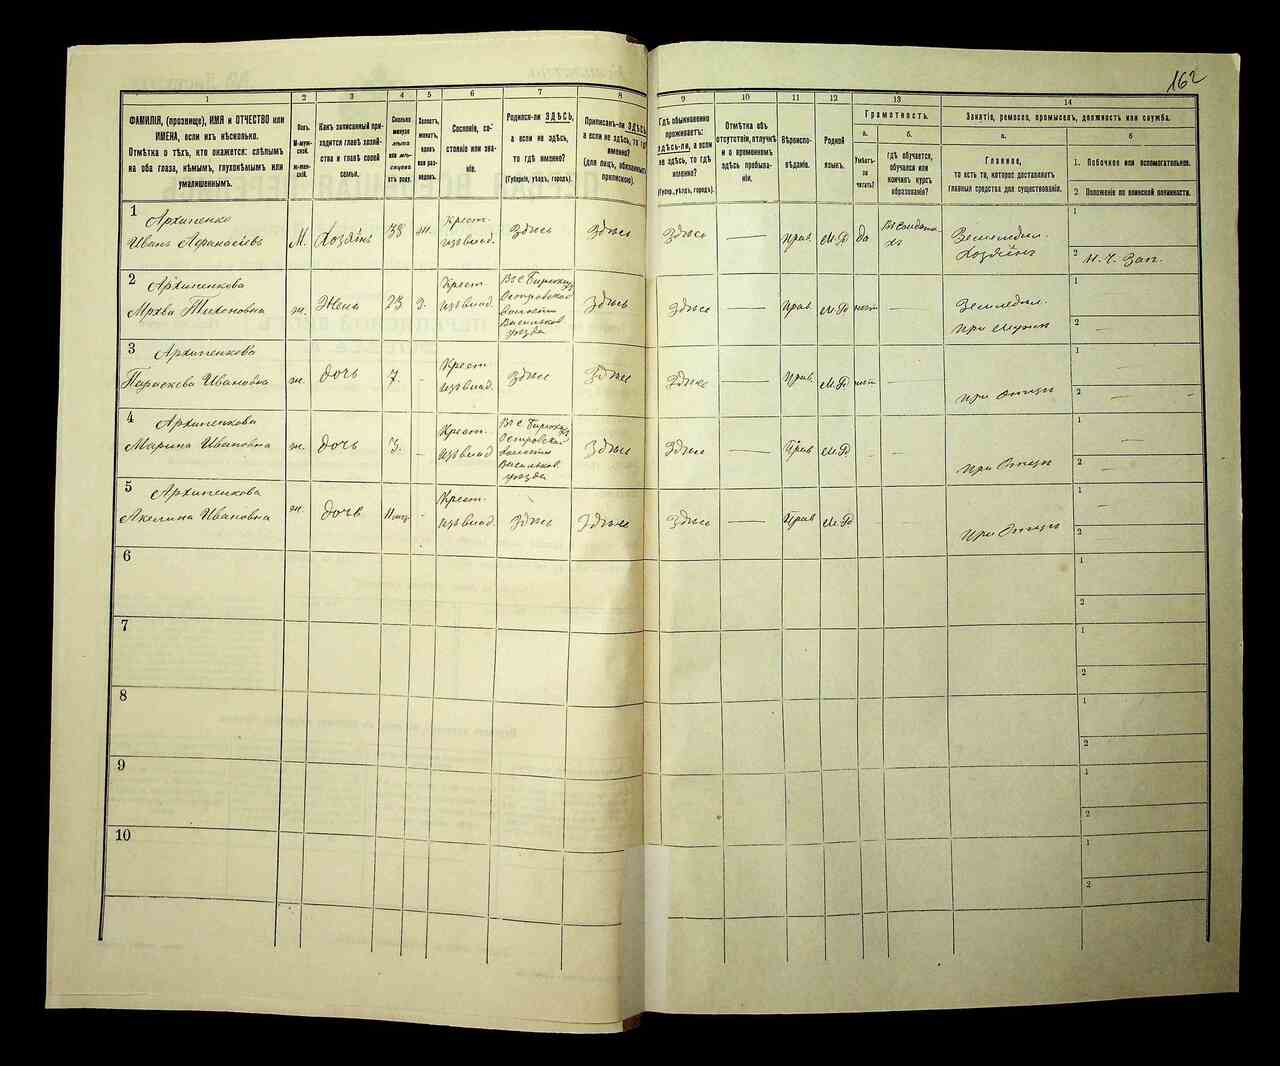 162
1
2
3
4
5
6
7
8
9
10
11
12
13
14
ФАМИЛІЯ, (прозвище), ИМЯ и ОТЧЕСТВО или
ИМЕНА, если ихъ нѣсколько.
Отмѣтка о тѣхъ, кто окажется: слѣпымъ
на оба глаза, нѣмымъ, глухонѣмымъ или
умалишеннымъ.
Полъ.
М-муж-
ской.
Ж-жен-
скій.
Какъ записанный при-
ходится главѣ хозяй-
ства и главѣ своей
семьи.
Сколько
минуло
лѣтъ
или мѣ-
сяцевъ
отъ роду.
Холостъ,
женатъ,
вдовъ
или раз-
веденъ.
Сословіе, со-
стояніе или зва-
ніе.
Родился-ли ЗДѢСЬ,
а если не здѣсь,
то гдѣ именно?
(Губернія, уѣздъ, городъ).
Приписанъ-ли ЗДѢСЬ,
а если не здѣсь, то гдѣ
именно?
(для лицъ, обязанныхъ
припискою).
Гдѣ обыкновенно
проживаетъ:
здѣсь-ли, а если
не здѣсь, то гдѣ
именно?
(Губер., уѣздъ, городъ).
Отмѣтка объ
отсутствіи, отлучкѣ
и о временномъ
здѣсь пребыва-
ніи.
Вѣроиспо-
вѣданіе.
Родной
языкъ.
Грамотность.
а.
б.
Умѣетъ-
ли
читать?
Гдѣ обучается,
обучался или
кончилъ курсъ
образованія?
Занятіе, ремесло, промыселъ, должность или служба.
а.
б
Главное,
то есть то, которое доставляетъ
главныя средства для существованія.
1. Побочное или вспомогательное.
2 Положеніе по воинской повинности.
1
Архипенко
Иванъ Афанасіевъ
М.
Хозяинъ
38
ж.
Крест.
изъ влад.
Здѣсь
Здѣсь
Здѣсь
Прав.
М.Р
да
Земледѣл.
Хозяинъ
1
2
Н. Ч. Зап.
2
Архипенкова
Тихоновна
ж.
Жена
23
З.
Крест
изъ влад.
Въ с Бирюки
Островской
волости
Васильков.
уѣзда
Здѣсь
Здѣсь
Прав.
М.Р
нѣт
Земледѣл.
При Мужѣ
1
2
3
Архипенкова
Параскева Ивановна
ж.
дочь
7.
Крест.
изъ влад.
Здѣсь
Здѣсь
Здѣсь
Прав.
М.Р
нѣт
При Отцѣ
1
2
4
Архипенкова
Марина Ивановна
ж.
дочь
3.
Крест.
изъ влад
Въ с Бирюки
Островской
волости
Васильков.
уѣзда
Здѣсь
Здѣсь
Прав
М.Р
При Отцѣ
1
2
5
Архипенкова
Акелина Ивановна
ж.
дочь
Крест.
изъ влад.
Здѣсь
Здѣсь
Здѣсь
Прав
М.Р
При Отцѣ
1
2
6
1
2
7
1
2
8
1
2
9
1
2
10
1
2